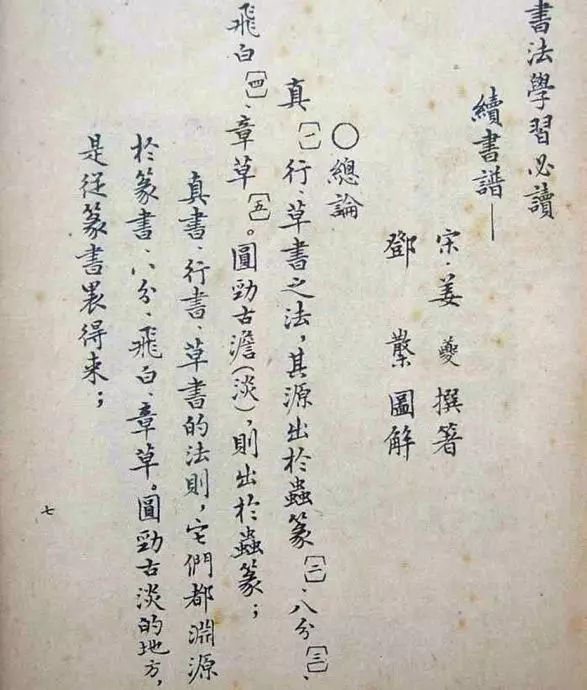 書法學習必讀
續書譜—
宋·姜夔撰箸
鄧 圖解
○總論
真〔一〕行、草書之法，其源出於蟲篆〔二〕、八分〔三〕、
飛白〔四〕、章草〔五〕。圓勁古澹(淡)，則出於蟲篆；
真書、行書、草書的法則，它們都淵源
於篆書、八分、飛白、章草。圓勁古淡的地方，
是從篆書裏得來；
七